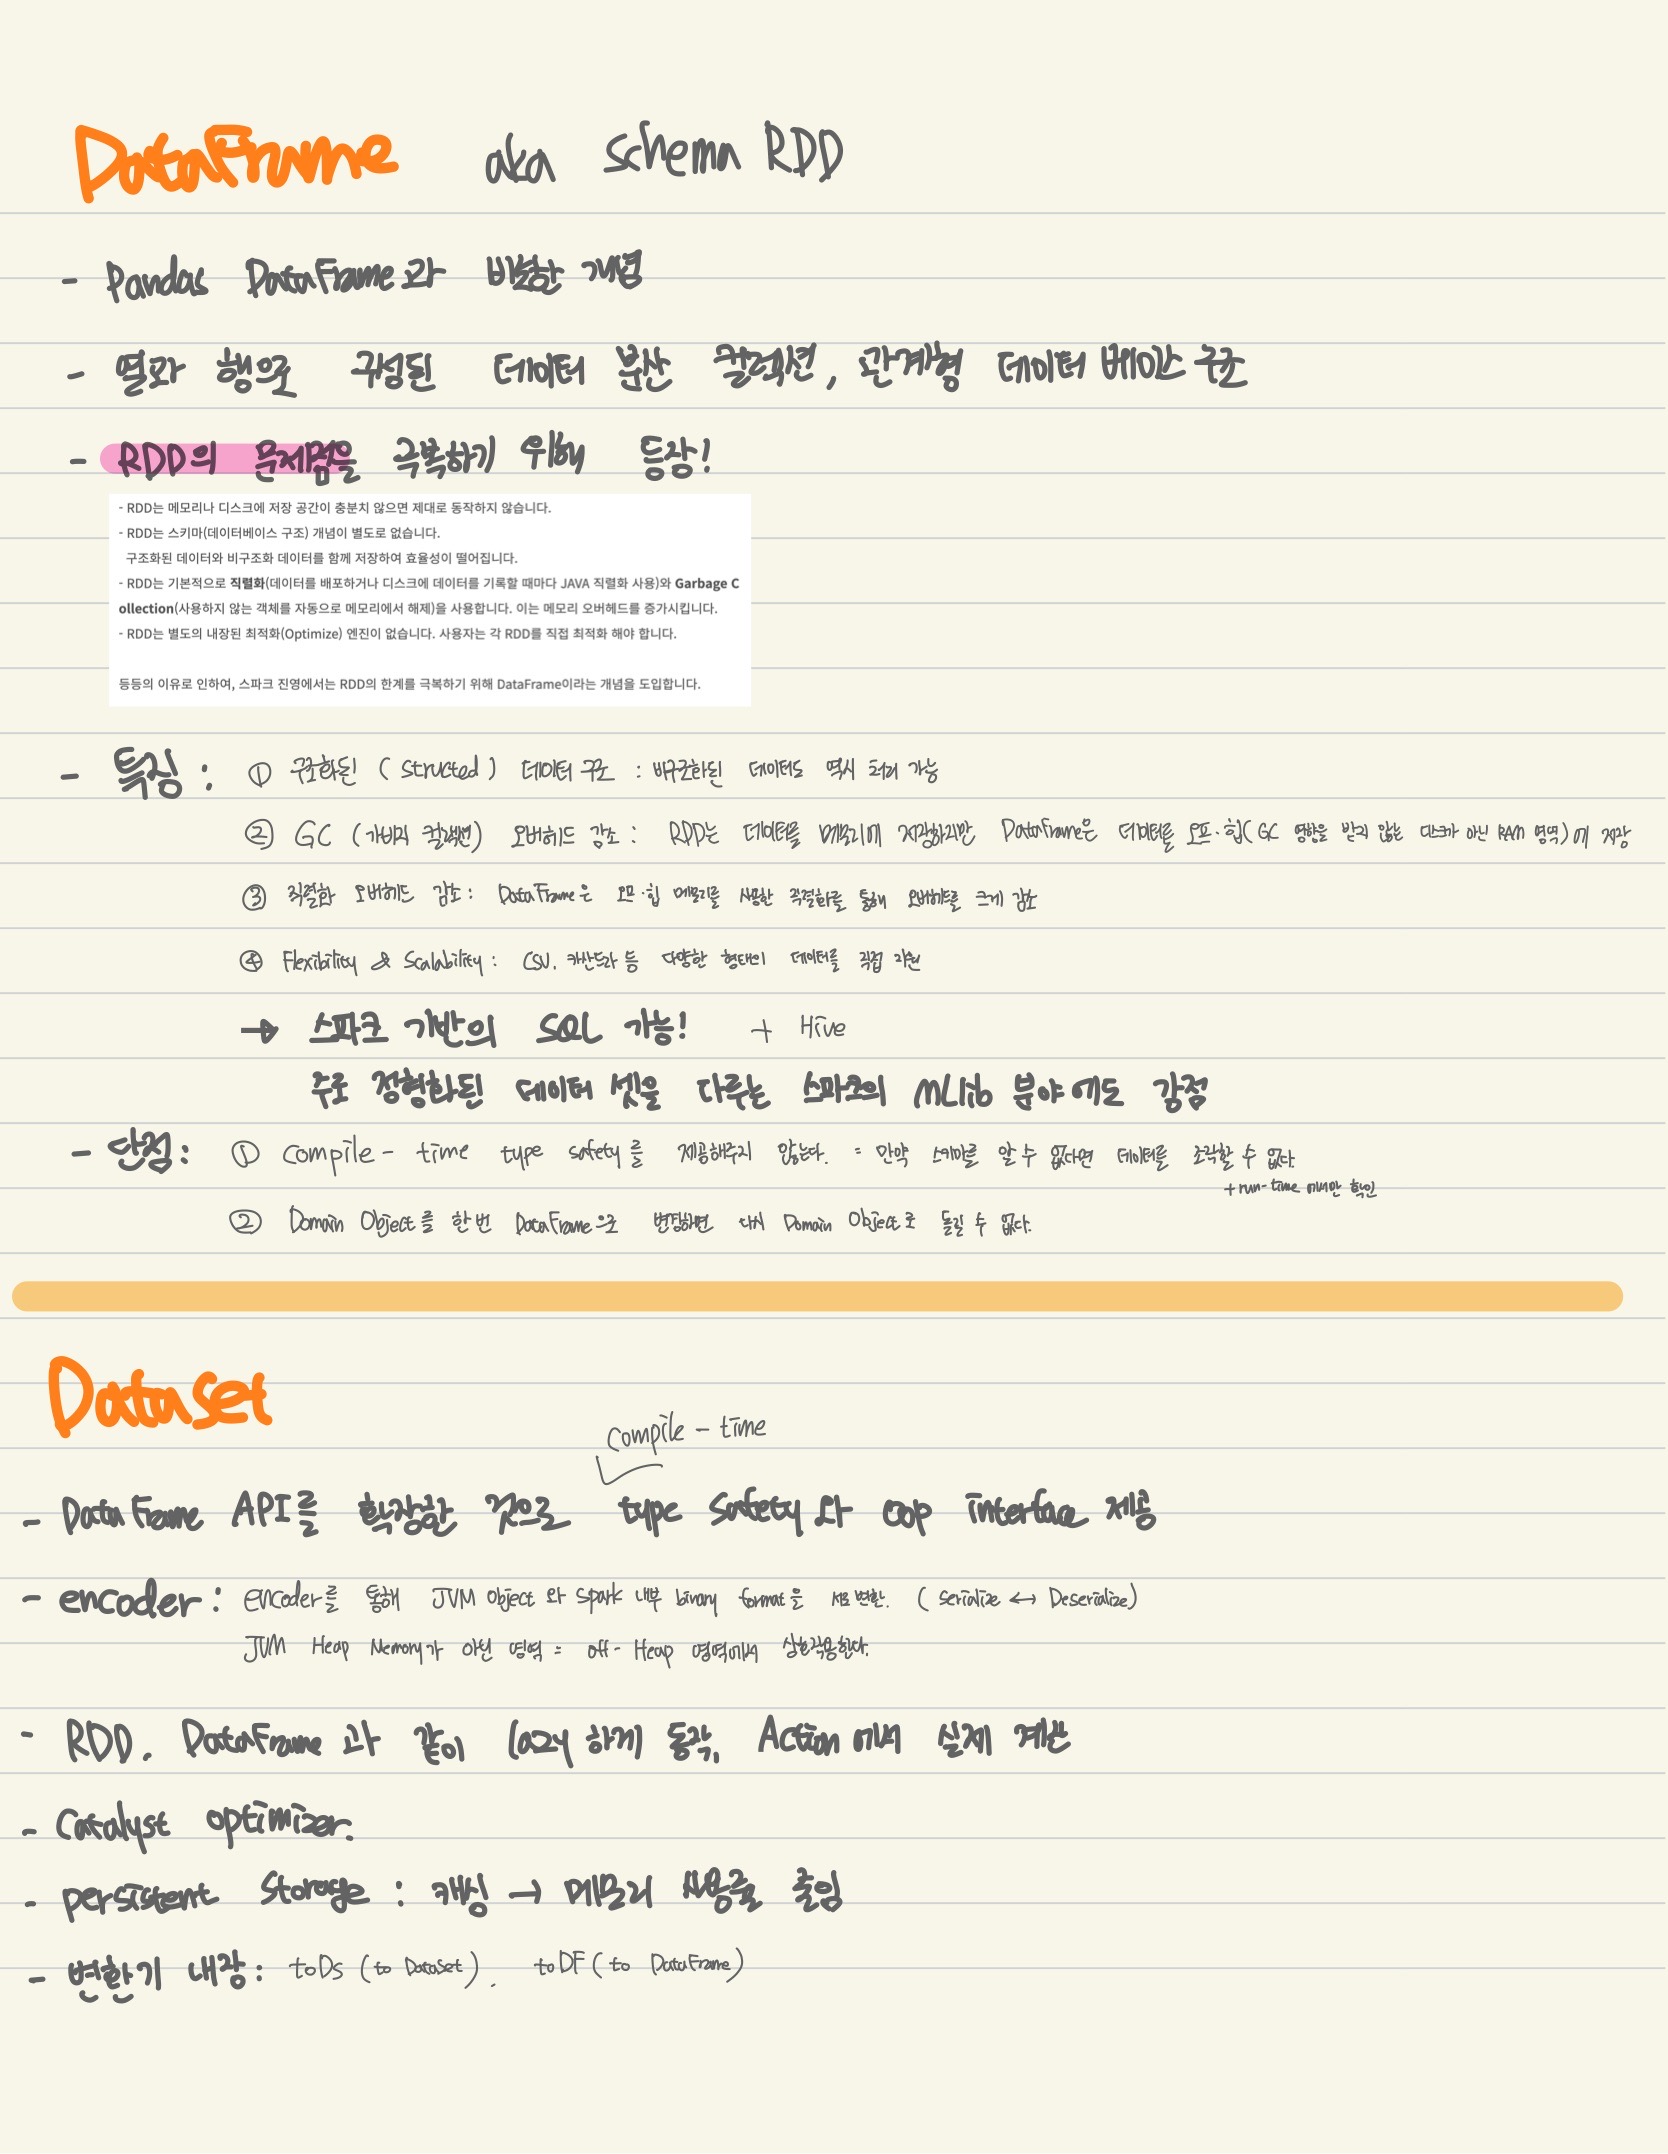 DataFrame aka schema RDD
- Pandas DataFrame과 비슷한 개념
- 열과 행으로 구성된 데이터 분산 컬렉션, 관계형 데이터 베이스 구조
- RDD의 문제점을 극복하기 위해 등장!
- RDD는 메모리나 디스크에 저장 공간이 충분치 않으면 제대로 동작하지 않습니다.
- RDD는 스키마(데이터베이스 구조) 개념이 별도로 없습니다.
구조화된 데이터와 비구조화 데이터를 함께 저장하여 효율성이 떨어집니다.
- RDD는 기본적으로 직렬화(데이터를 배포하거나 디스크에 데이터를 기록할 때마다 JAVA 직렬화 사용)와 Garbage C
ollection(사용하지 않는 객체를 자동으로 메모리에서 해제)을 사용합니다. 이는 메모리 오버헤드를 증가시킵니다.
- RDD는 별도의 내장된 최적화(Optimize) 엔진이 없습니다. 사용자는 각 RDD를 직접 최적화 해야 합니다.
등등의 이유로 인하여, 스파크 진영에서는 RDD의 한계를 극복하기 위해 DataFrame이라는 개념을 도입합니다.
- 특징 : ① 구조화된 (Structed) 데이터 구조 : 비구조화된 데이터도 역시 처리 가능
② GC (가비지 컬렉션) 오버헤드 감소 : RDD는 데이터를 메모리에 저장하지만 DataFrame은 데이터를 오프·힙(GC 영향을 받지 않는 디스크가 아닌 RAM 영역)에 저장
③ 직렬화 오버헤드 감소 : DataFrame은 오프·힙 메모리를 사용한 직렬화를 통해 오버헤드를 크게 감소
④ Flexibility & Scalability : CSV, 카산드라 등 다양한 형태의 데이터를 직접 지원
→ 스파크 기반의 SQL 가능! + Hive
주로 정형화된 데이터 셋을 다루는 스파크의 MLlib 분야에도 강점
- 단점 : ① Compile - time type safety를 제공해주지 않는다. = 만약 스키마를 알 수 없다면 데이터를 조작할 수 없다.
+ run-time 에서만 확인
② Domain Object를 한번 DataFrame으로 변경하면 다시 Domain Object로 돌릴 수 없다.
Dataset
Compile - time
- DataFrame API를 확장한 것으로 type safety와 oop interface 제공
- encoder : encoder를 통해 JVM object와 spark 내부 binary format을 서로 변환. (serialize ↔ Deserialize)
JVM Heap Memory가 아닌 영역 = off - Heap 영역에서 상호작용한다.
- RDD. DataFrame과 같이 lazy하게 동작, Action에서 실제 계산
- Catalyst optimizer.
- persistent Storage : 캐싱 → 메모리 사용률 줄임
- 변환기 내장 : toDs (to DataSet). toDF (to DataFrame)